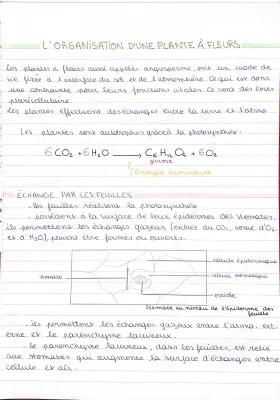 L'ORGANISATION D'UNE PLANTE À FLEURS
Les plantes à fleurs aussi appelés angiosperme, ont un mode de
vie fixée à l'interface du sol et de l'atmosphère. Ce qui est donc
une contrainte pour leurs fonctions vitales. Ce sont des êtres
pluricellulaire.
Les plantes effectuent des échanges entre la terre et l'atmo
Les plantes sont autotrophes grâce à la photosynthèse:
6 CO2 + 6 H2O → C6 H12 O6 + 6 O2
glucose
énergie lumineuse
ÉCHANGE PAR LES FEUILLES
- les feuilles réalisent la photosynthèse
- possèdent à la surface de leurs épidermes des stomates.
ils permettent les échanges gazeux (entrée du CO2, sortie d'O2
et d'H2O), peuvent être fermés ou ouverts.
cellule épidermique
stomate
cellule stomatique
ostiole
Stomate au niveau de l'épiderme des
feuille
- ils permettent les échanges gazeux entre l'atmo. ext-
erne et le parenchyme lacuneux.
- le parenchyme lacuneux, dans les feuilles, est relié
aux stomates qui augmente la surface d'échanges entre
cellule et air.